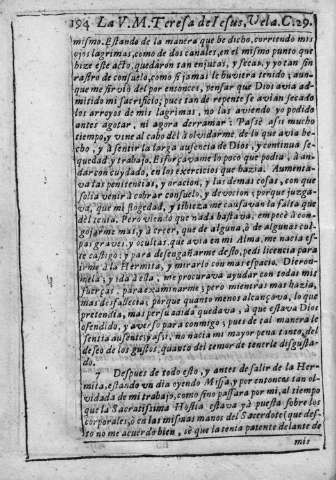 194 La V. M. Teresa de Iesus, Vela. C. 29.
mismo. Estando de la manera que he dicho, corriendo mis
ojos lagrimas, como de dos canales, en el mismo punto que
hize este acto, quedaron tan enjutas, y secas, y yo tan sin
rastro de consuelo, como si jamas le huviera tenido; aun-
que me sirviò del por entonces, pensar que Dios avia ad-
mitido mi sacrificio; pues tan de repente se avian secado
los arroyos de mis lagrimas, no las aviendo yo podido
antes agotar, ni agora derramar: Passè assi mucho
tiempo, y vine al cabo dèl à olvidarme de lo que avia he-
cho, y à sentir la larga ausencia de Dios, y continua se-
quedad y trabajo. Esforçavame lo poco que podia, à an-
dar con cuydado, en los exercicios que hazia. Aumenta-
va las penitencias, y oracion, y las demas cosas, con que
solia venir à cobrar consuelo, y devocion; porque juzga-
va, que mi floxedad, y tibieza me causavan la falta que
dèl tenia. Pero viendo que nada bastava, empecè à con-
gojarme mas, y à creer, que de alguna, ò de algunas cul-
pas graves, y ocultas, que avia en mi Alma, me nacia es-
te castigo; y para desengañarme desto, pedi licencia para
irme à la Hermita, y mirarlo con mas espacio. Dieron-
mela; y ida à esta, me procurava ayudar con todas mis
fuerças, para examinarme; pero mientras mas hazia,
mas desfallecia; porque quanto menos alcançava, lo que
pretendia, mas persuadida quedava, à que estava Dios
ofendido, y averso para conmigo; pues de tal manera le
sentia ausente; y assi, no nacia mi mayor pena tanto, del
deseo de los gustos, quanto del temor de tenerle disgusta-
do.
7 Despues de todo esto, y antes de salir de la Her-
mita, estando un dia oyendo Missa, y por entonces tan ol-
vidada de mi trabajo, como sino passara por mi, al tiempo
que la Sacratissima Hostia estava yà puesta sobre los
corporales, ò en las mismas manos del Sacerdote (que des-
to no me acuerdo bien, sè que la tenia patente delante de
mis